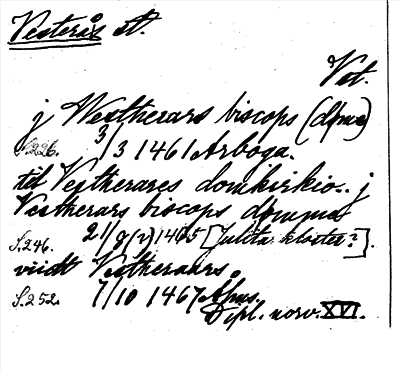 Vesterås st.
Vst.
j Westherars biscops (döme)
S. 226. 3/3 1461 Arboga.
till Vestherares domkirkio.. j
Vestherars biscops dømme
S. 246. 21/9(?) 1465 [Julita kloster?].
viidt Vestheraars
S. 252. 7/10 1467 Åhus.
Dipl. norv. XVI.